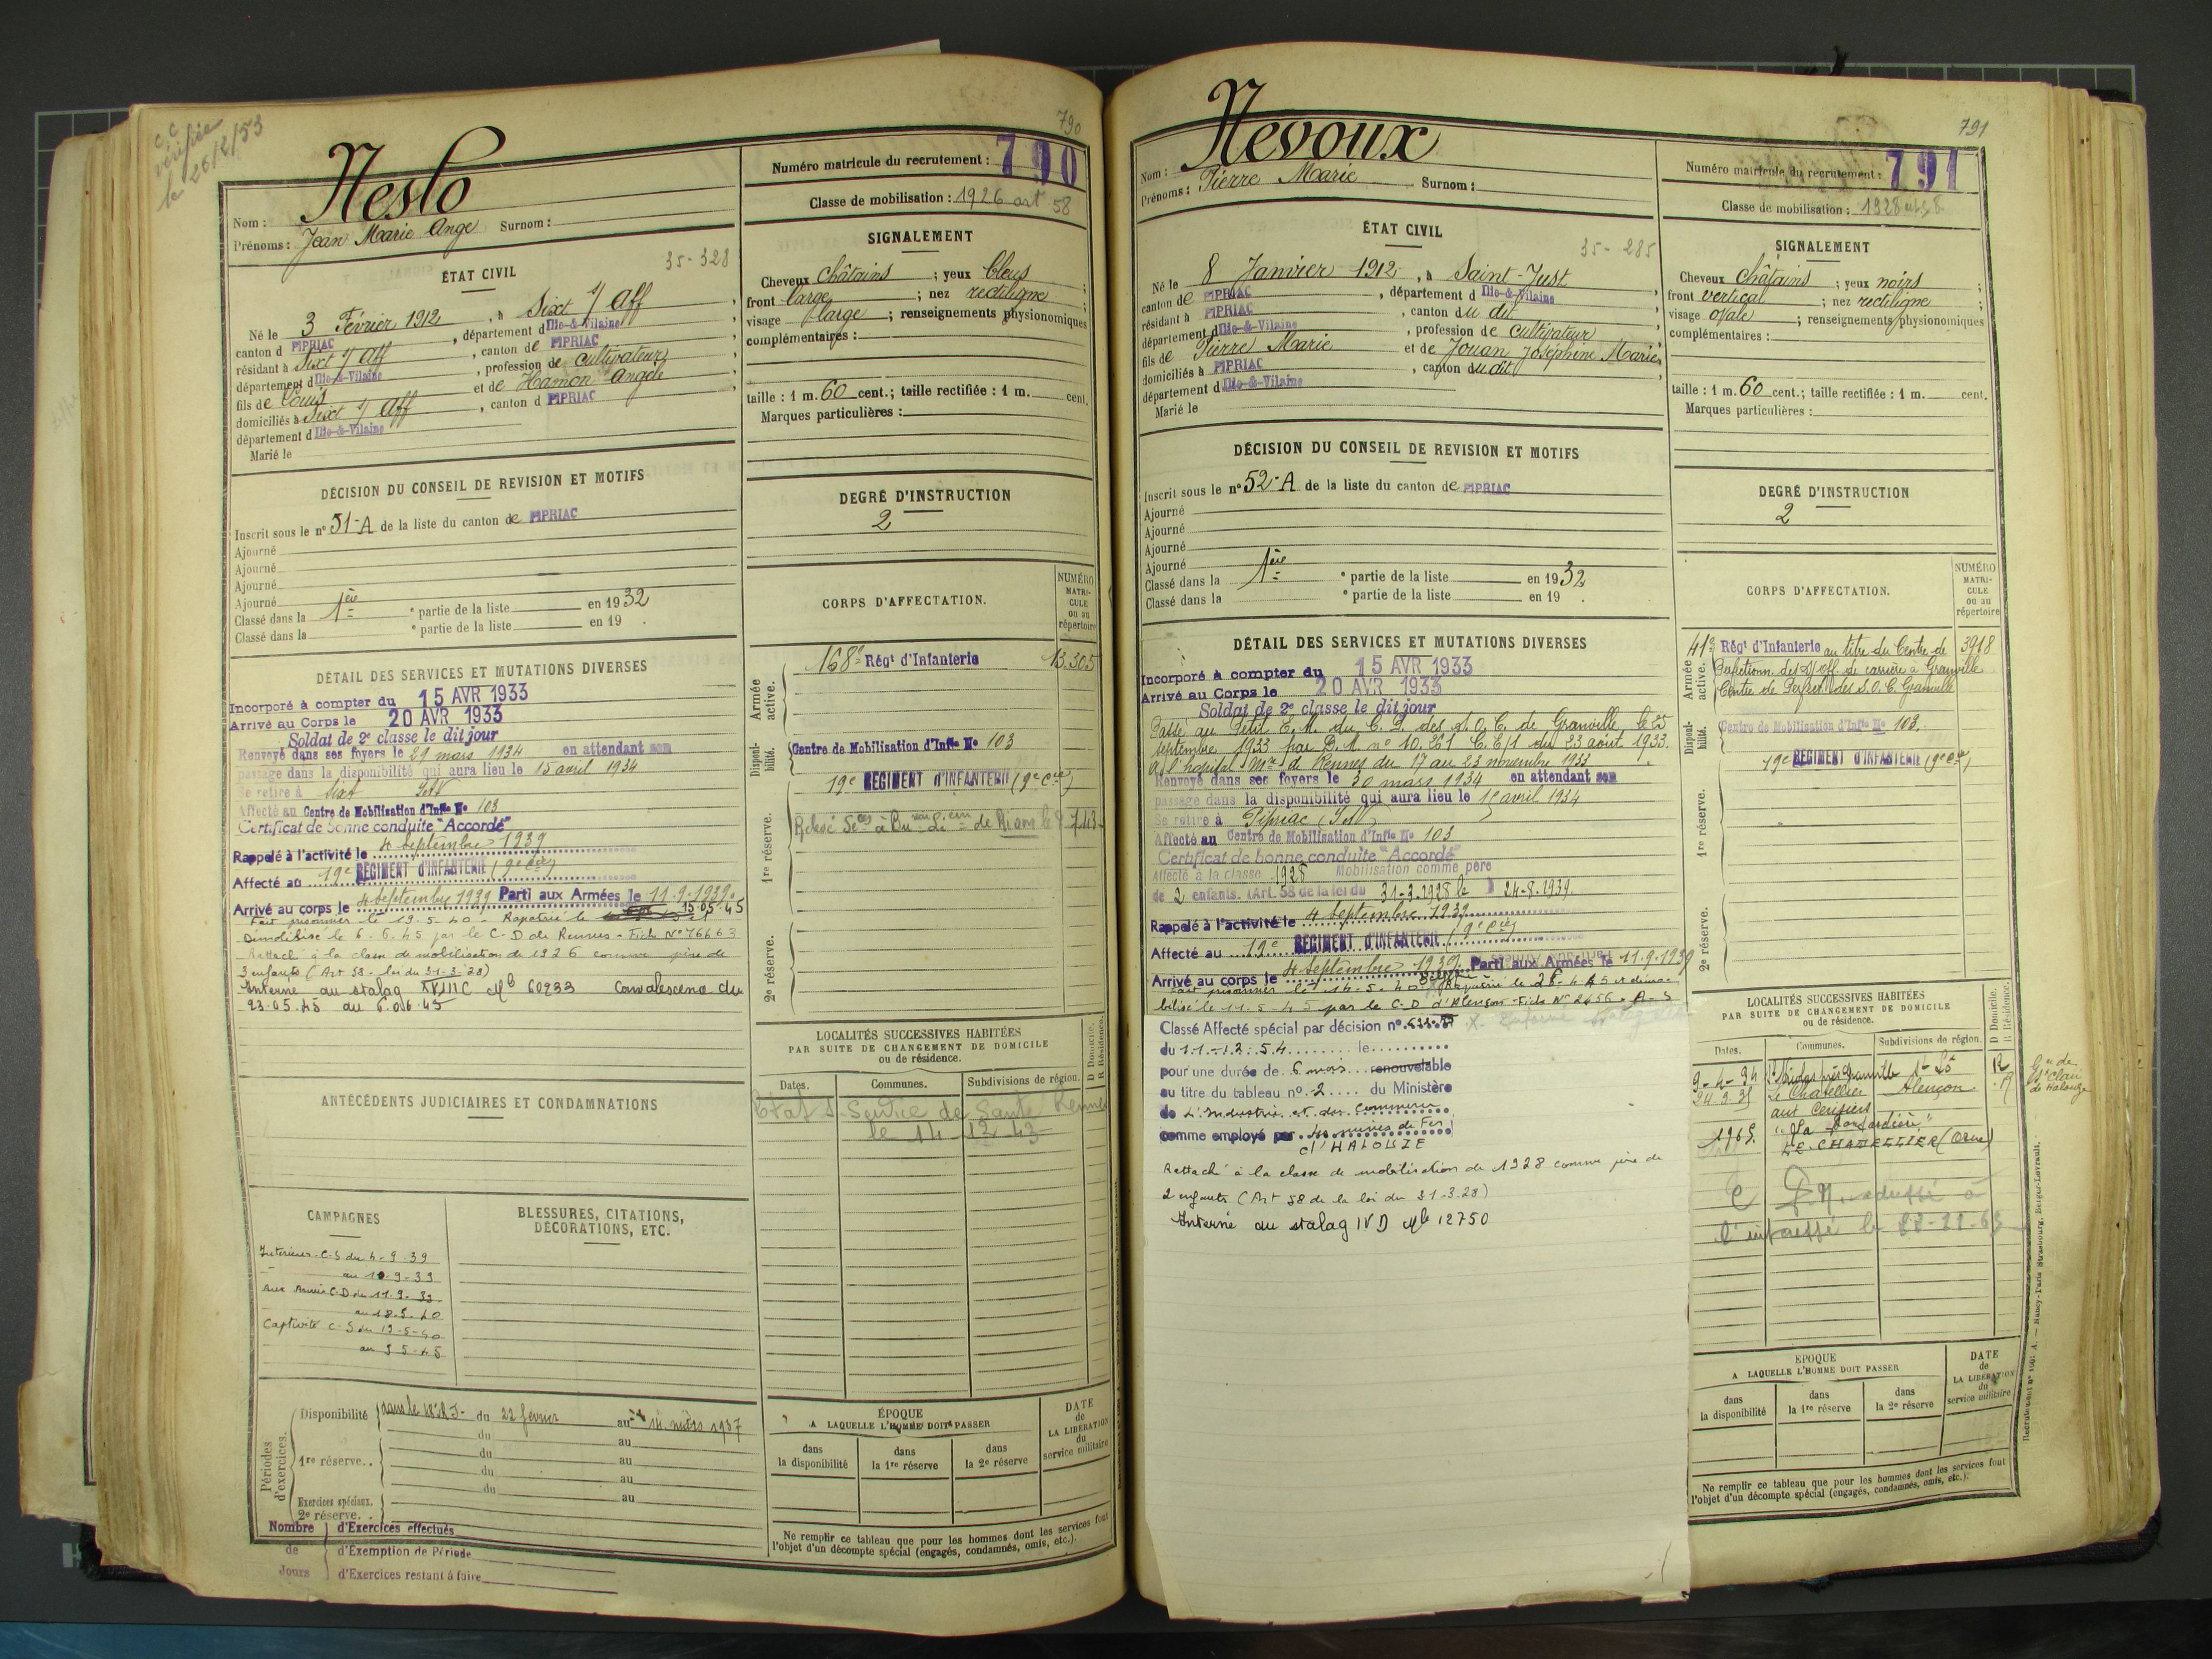 c c
vérifiée
le 26/2/53
790
Nom : Neslo
Prénoms : Jean Marie Ange Surnom :
Numéro matricule du recrutement : 790
Classe de mobilisation : 1926 art 58
ÉTAT CIVIL
35-328
Né le 3 Février 1912, à Sixt s/ Aff,
canton d PIPRIAC, département d Ille-&-Vilaine
résidant à Sixt s/ Aff, canton de PIPRIAC
département d Ille-&-Vilaine, profession de cultivateur
fils de Louis et de Hamon Angèle
domiciliés à Sixt s/ Aff, canton d PIPRIAC
département d Ille-&-Vilaine
Marié le
SIGNALEMENT
Cheveux châtains ; yeux bleus ;
front large ; nez rectiligne ;
visage large ; renseignements physionomiques
complémentaires :
taille : 1 m. 60 cent.; taille rectifiée : 1 m. cent.
Marques particulières :
DÉCISION DU CONSEIL DE REVISION ET MOTIFS
Inscrit sous le n° 51-A de la liste du canton de PIPRIAC
Ajourné
Ajourné
Ajourné
Ajourné
Classé dans la 1ère e partie de la liste en 1932
Classé dans la e partie de la liste en 19 .
DEGRÉ D'INSTRUCTION
2
CORPS D'AFFECTATION.
NUMÉRO
MATRI-
CULE
ou au
répertoire
Armée active.
168e Régt d'Infanterie 13.305
Disponi-bilité.
Centre de Mobilisation d'Infie No 103
19e REGIMENT D'INFANTERIE (9e Cie)
1re réserve.
2e réserve.
DÉTAIL DES SERVICES ET MUTATIONS DIVERSES
Incorporé à compter du 15 AVR 1933
Arrivé au Corps le 20 AVR 1933
Soldat de 2e classe le dit jour
Renvoyé dans ses foyers le 29 mars 1934 en attendant son
passage dans la disponibilité qui aura lieu le 15 avril 1934
Se retire à Sixt
Affecté au Centre de Mobilisation d'Infie No 103
Certificat de bonne conduite "Accordé"
Rappelé à l'activité le 4 septembre 1939
Affecté au 19e REGIMENT D'INFANTERIE (9e Cie)
Arrivé au corps le 4 septembre 1939 Parti aux Armées le 11.9.1939.
Fait prisonnier le 19-5-40 - Rapatrié le 15.05.45
Démobilisé le 6.6.45 par le C-D de Rennes - Fiche N° 76663
Rattaché à la classe de mobilisation de 1926 comme père de
3 enfants (Art 58 - loi du 31-3-28)
Interné au stalag XVIIIC Mle 60233 Convalescence du
23.05.45 au 6.06.45
ANTÉCÉDENTS JUDICIAIRES ET CONDAMNATIONS
LOCALITÉS SUCCESSIVES HABITÉES
PAR SUITE DE CHANGEMENT DE DOMICILE
ou de résidence.
D Domicile.
R Résidence.
Dates. Communes. Subdivisions de région.
Etat S. Service de Santé Rennes
le 14 12 43
CAMPAGNES
BLESSURES, CITATIONS,
DÉCORATIONS, ETC.
Intérieur C.S du 4-9-39
au 10.9.39
Aux Armées C.D du 11.9.39
au 18.5.40
Captivité C-S du 19-5-40
Périodes d'exercices.
Disponibilité du 22 février au 14 mars 1937
du au
1re réserve.. du au
du au
du au
Exercices spéciaux.
2e réserve. .
Nombre de Jours
d'Exercices effectués
d'Exemption de Période
d'Exercices restant à faire
ÉPOQUE
A LAQUELLE L'HOMME DOIT PASSER
dans la disponibilité
dans la 1re réserve
dans la 2e réserve
DATE
de
LA LIBÉRATION
du
service militaire
Ne remplir ce tableau que pour les hommes dont les services font
l'objet d'un décompte spécial (engagés, condamnés, omis, etc.).
791
Nom : Nevoux
Prénoms : Pierre Marie Surnom :
Numéro matricule du recrutement : 791
Classe de mobilisation : 1928 art 58
ÉTAT CIVIL
35-285
Né le 8 Janvier 1912, à Saint-Just,
canton de PIPRIAC, département d Ille-&-Vilaine
résidant à PIPRIAC, canton du dit
département d Ille-&-Vilaine, profession de cultivateur
fils de Pierre Marie et de Jouan Joséphine Marie
domiciliés à PIPRIAC, canton du dit
département d Ille-&-Vilaine
Marié le
SIGNALEMENT
Cheveux châtains ; yeux noirs ;
front vertical ; nez rectiligne ;
visage ovale ; renseignements physionomiques
complémentaires :
taille : 1 m. 60 cent.; taille rectifiée : 1 m. cent.
Marques particulières :
DÉCISION DU CONSEIL DE REVISION ET MOTIFS
Inscrit sous le n° 52-A de la liste du canton de PIPRIAC
Ajourné
Ajourné
Ajourné
Ajourné
Classé dans la 1ère e partie de la liste en 1932
Classé dans la e partie de la liste en 19 .
DEGRÉ D'INSTRUCTION
2
CORPS D'AFFECTATION.
NUMÉRO
MATRI-
CULE
ou au
répertoire
Armée active.
41e Régt d'Infanterie au titre du Centre de 3918
Perfectionn. des S/off. de carrière à Granville
Centre de Perfect. des S.O.C. Granville
Disponi-bilité.
Centre de Mobilisation d'Infie No 103.
19e REGIMENT D'INFANTERIE (9e Cie)
1re réserve.
2e réserve.
DÉTAIL DES SERVICES ET MUTATIONS DIVERSES
Incorporé à compter du 15 AVR 1933
Arrivé au Corps le 20 AVR 1933
Soldat de 2e classe le dit jour
Passé au Petit E. M. du C. P. des S. O. C. de Granville le 25
septembre 1933 par D. M. n° 10.221 C. E/1 du 23 août 1933.
A l'hôpital Mre de Rennes du 17 au 23 novembre 1933
Renvoyé dans ses foyers le 30 mars 1934 en attendant son
passage dans la disponibilité qui aura lieu le 15 avril 1934
Se retire à Pipriac
Affecté au Centre de Mobilisation d'Infie No 103
Certificat de bonne conduite "Accordé"
Affecté à la classe 1928 Mobilisation comme père
de 2 enfants. (Art. 58 de la loi du 31-3-1928 le 24-8-1939.
Rappelé à l'activité le 4 septembre 1939
Affecté au 19e REGIMENT D'INFANTERIE (9e Cie)
Arrivé au corps le 4 septembre 1939. Parti aux Armées le 11.9.1939
Fait prisonnier le 14-5-40 Rapatrié le 26-4-45 et démo-
bilisé le 11-5-45 par le C-D d'Alençon - Fiche N° 2456 - A-S
Classé Affecté spécial par décision n°
du 11-12-54 le
pour une durée de 6 mois renouvelable
au titre du tableau n° 2 du Ministère
de L'Industrie et du Commerce
comme employé par les mines de Fer
d'HALOUZE
Rattaché à la classe de mobilisation de 1928 comme père de
2 enfants (Art 58 de la loi du 31.3.28)
Interné au stalag IV D Mle 12750
LOCALITÉS SUCCESSIVES HABITÉES
PAR SUITE DE CHANGEMENT DE DOMICILE
ou de résidence.
D Domicile.
R Résidence.
Dates. Communes. Subdivisions de région.
9-4-34 St Nicolas près Granville St Lô R
24.3.35 Le Chatellier Alençon
aux Cerisiers
de Halouze
LE CHATELLIER (Orne)
adressé à
l'intéressé le
ÉPOQUE
A LAQUELLE L'HOMME DOIT PASSER
dans la disponibilité
dans la 1re réserve
dans la 2e réserve
DATE
de
LA LIBÉRATION
du
service militaire
Ne remplir ce tableau que pour les hommes dont les services font
l'objet d'un décompte spécial (engagés, condamnés, omis, etc.).
Nancy-Paris Strasbourg, Berger-Levrault.